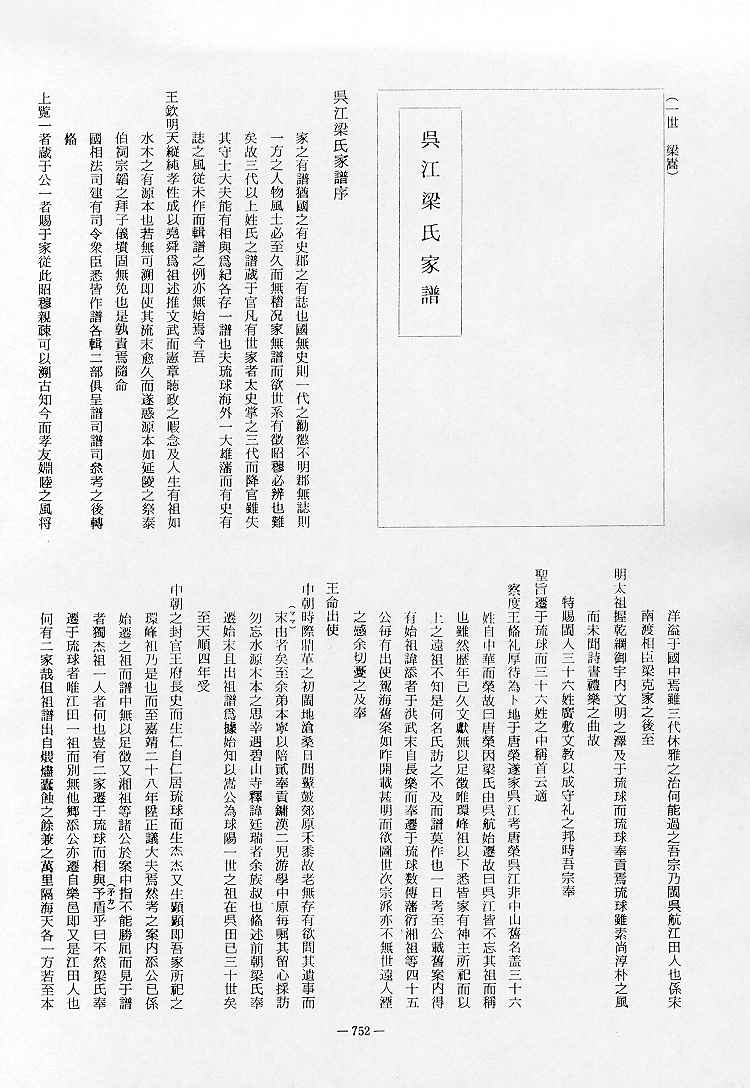 (一世　梁嵩)
呉江梁氏家譜
呉江梁氏家譜序
家之有譜猶國之有史郡之有誌也國無史則一代之勸懲不明郡無誌則
一方之人物風土必至久而無稽况家無譜而欲世系有徵昭穆必辨也難
矣故三代以上姓氏之譜蔵于官凡有世家者太史掌之三代而降官雖失
其守士大夫能有相與爲紀各存一譜也夫琉球海外一大雄藩而有史有
誌之風従未作而輯譜之例亦無始焉今吾
王欽明天縱純孝性成以堯舜爲祖述推文武而憲章聴政之暇念及人生有祖如
水木之有源本也若無可溯即使其流末愈久而遂惑源本如延陵之祭泰
伯祠宗韜之拜子儀墳固無免也是孰責焉隨命
國相法司建有司令衆臣悉皆作譜各輯二部俱呈譜司譜司叅考之後轉
條
上覧一者蔵于公一者賜于家従此昭穆親疎可以溯古知今而孝友婣陸之風将
洋溢于國中焉雖三代休雅之治何能過之吾宗乃閩呉航江田人也係宋
南渡相臣梁克家之後至
明太祖握乾綱御宇内文明之澤及于琉球而琉球奉貢焉琉球雖素尚淳朴之風
而未聞詩書禮樂之曲故
特賜閩人三十六姓廣敷文教以成守礼之邦時吾宗奉
聖旨遷于琉球而三十六姓之中稱首云適
察度王條礼厚待為卜地于唐榮遂家呉江考唐榮呉江非中山舊名盖三十六
姓自中華而榮故曰唐榮因梁氏由呉航始遷故曰呉江皆不忘其祖而稱
也雖然歴年已久文獻無以足徵唯環峰祖以下悉皆家有神主所祀而以
上之遠祖不知是何名氏訪之不及而譜莫作也一日考至公載舊案内得
有始祖諱添者于洪武末自長樂而奉遷于琉球数傳藩衍湘祖等四十五
公毎有出使駕海舊案如昨開載甚明而欲圖世次宗派亦不無世遠人湮
之感余切憂之及奉
王命出使
中朝時際鼎革之初閩地滄桑日聞鼙皷郊原禾黍故老無存有欲問其遺事而
末(ママ)由者矣至余弟本寧以陪貳奉貢鏽漢二児游學中原毎嘱其留心採訪
勿忘水源木本之思幸遇碧山寺釋諱廷瑞者余族叔也條述前朝梁氏奉
遷始末且出祖譜爲據始知以嵩公為球陽一世之祖在呉田已三十世矣
至天順四年受
中朝之封官王府長史而生仁自仁居琉球而生杰杰又生顕顕即吾家所祀之
環峰祖乃是也而至嘉靖二十八年陞正議大夫焉然考之案内添公已係
始遷之祖而譜中無以足徵又湘祖等諸公於案中指不能勝屈而見于譜
者獨杰祖一人者何也豈有二家遷于琉球而相與予(矛カ)盾乎曰不然梁氏奉
遷于琉球者唯江田一祖而別無他郷添公亦遷自榮邑即又是江田人也
何有二家哉但祖譜出自煨燼蠹蝕之餘兼之萬里隔海天各一方若至本
—752—